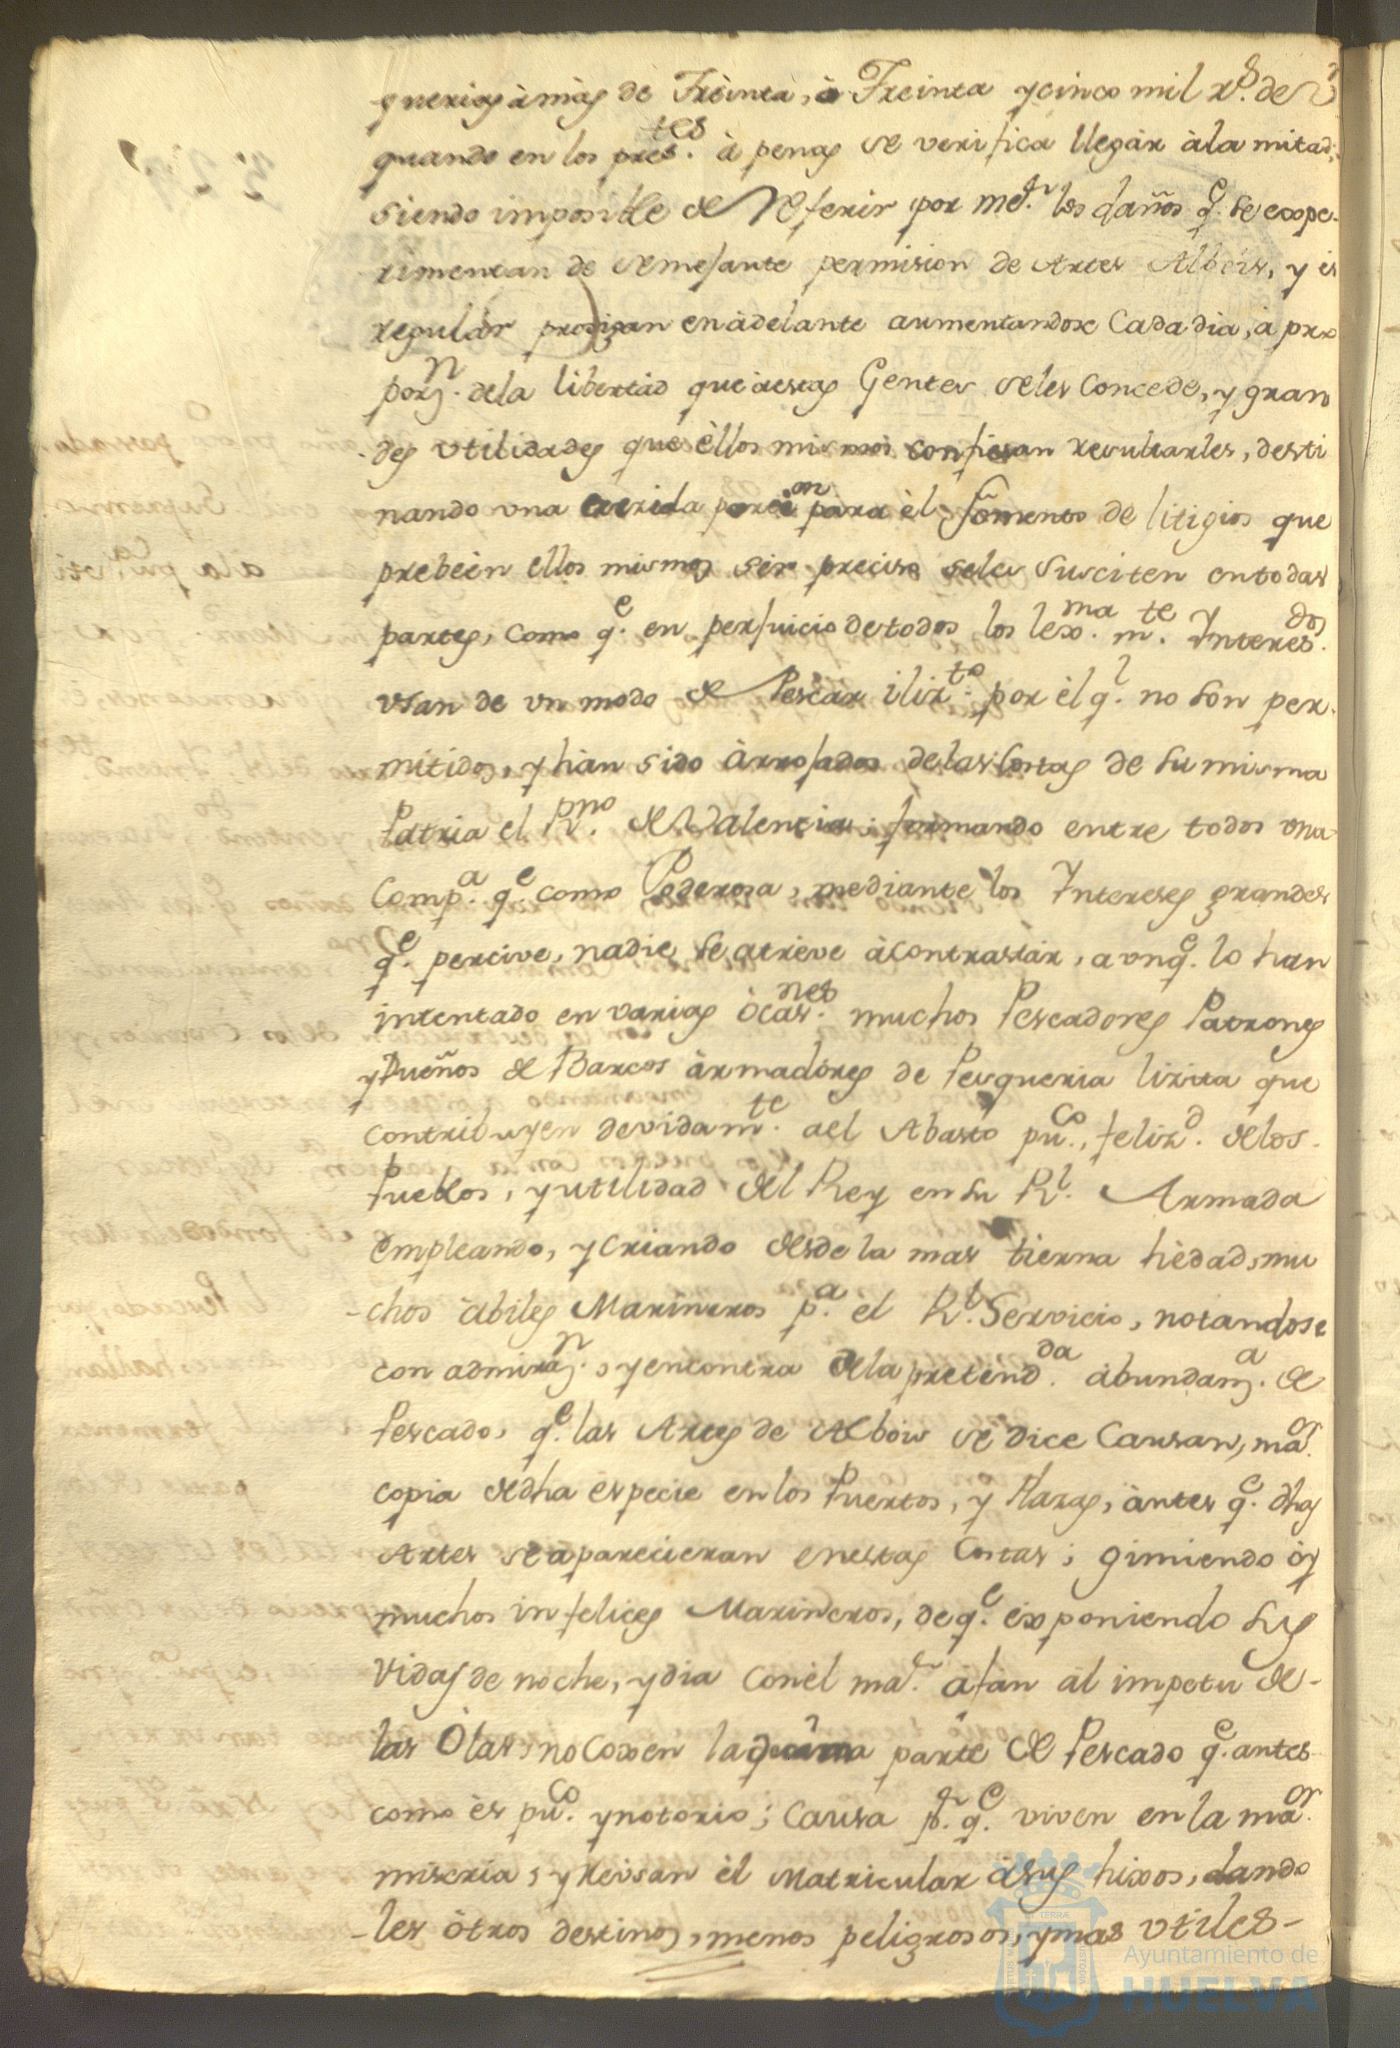 querias à màs de Treinta, ò Treinta y cinco mil rs. de vn
quando en los pres.tes à penas se verifica llegàr à la mitad;
siendo imposible de Referir por mer. los daños q.e se expe-
rimentan de semejante permision de Artes Albóis, y es
regulàr prosigan en àdelante aumentandose Cada dia, à pro
porz.n dela libertàd que àestas Gentes seles Concede, y gran
-des vtilidades que èllos mismos confiesan resultarles, desti
nando vna crecida porcion para èl fomento de litigios que
prebeen ellos mismos ser preciso seles Susciten en todas
partes, como q.e en perjuicio de todos los lex.ma m.te Ynteres.dos
vsan de vn modo de Pescàr iliz.to por èl q.l no son per-
mitidos, y hàn sido àrrojados de las Costas de su misma
Patria el R.no de Valencia; formando entre todos vna
Comp.a q.e como Poderosa, mediante los Yntereses grandes
q.e percive, nadie se atreve àcontrastàr, a vnq.e lo han
intentado en varias òcas.nes muchos Pescadores Patrones
y Dueños de Barcos àrmadòres de Pesqueria lizita que
contribuyen devidam.te ael Abasto pu.co, feliz.d delos
Pueblos, y utilidad del Rey en su R.l Armada
empleando, y Criando desde la mas tierna hèdad, mu
-chos àbiles Marineros p.a el R.l Servicio, notandose
con admiraz.n, y encontra dela pretend.da àbundanz.a de
Pescado, q.e las Artes de Albois se dice Causan, ma.or
copia de dha especie en los Puertos, y Plazas, àntes q.e dhas
Artes se aparecieran en estas Costas; gimiendo òy
muchos infelices Marineros, de q.e exponiendo sus
vidas de noche, y dia con èl ma.r àfàn àl impetu de-
las Olas, no Coxen la quinta parte de Pescado q.e antes
como ès pu.co y notorio; Causa p.r q.e viven en la ma.or
miseria, y Reusan èl Matricular à sus hixos, dando
-les òtros destinos, menos peligrosos, y mas vtiles-
Ayuntamiento de
HUELVA